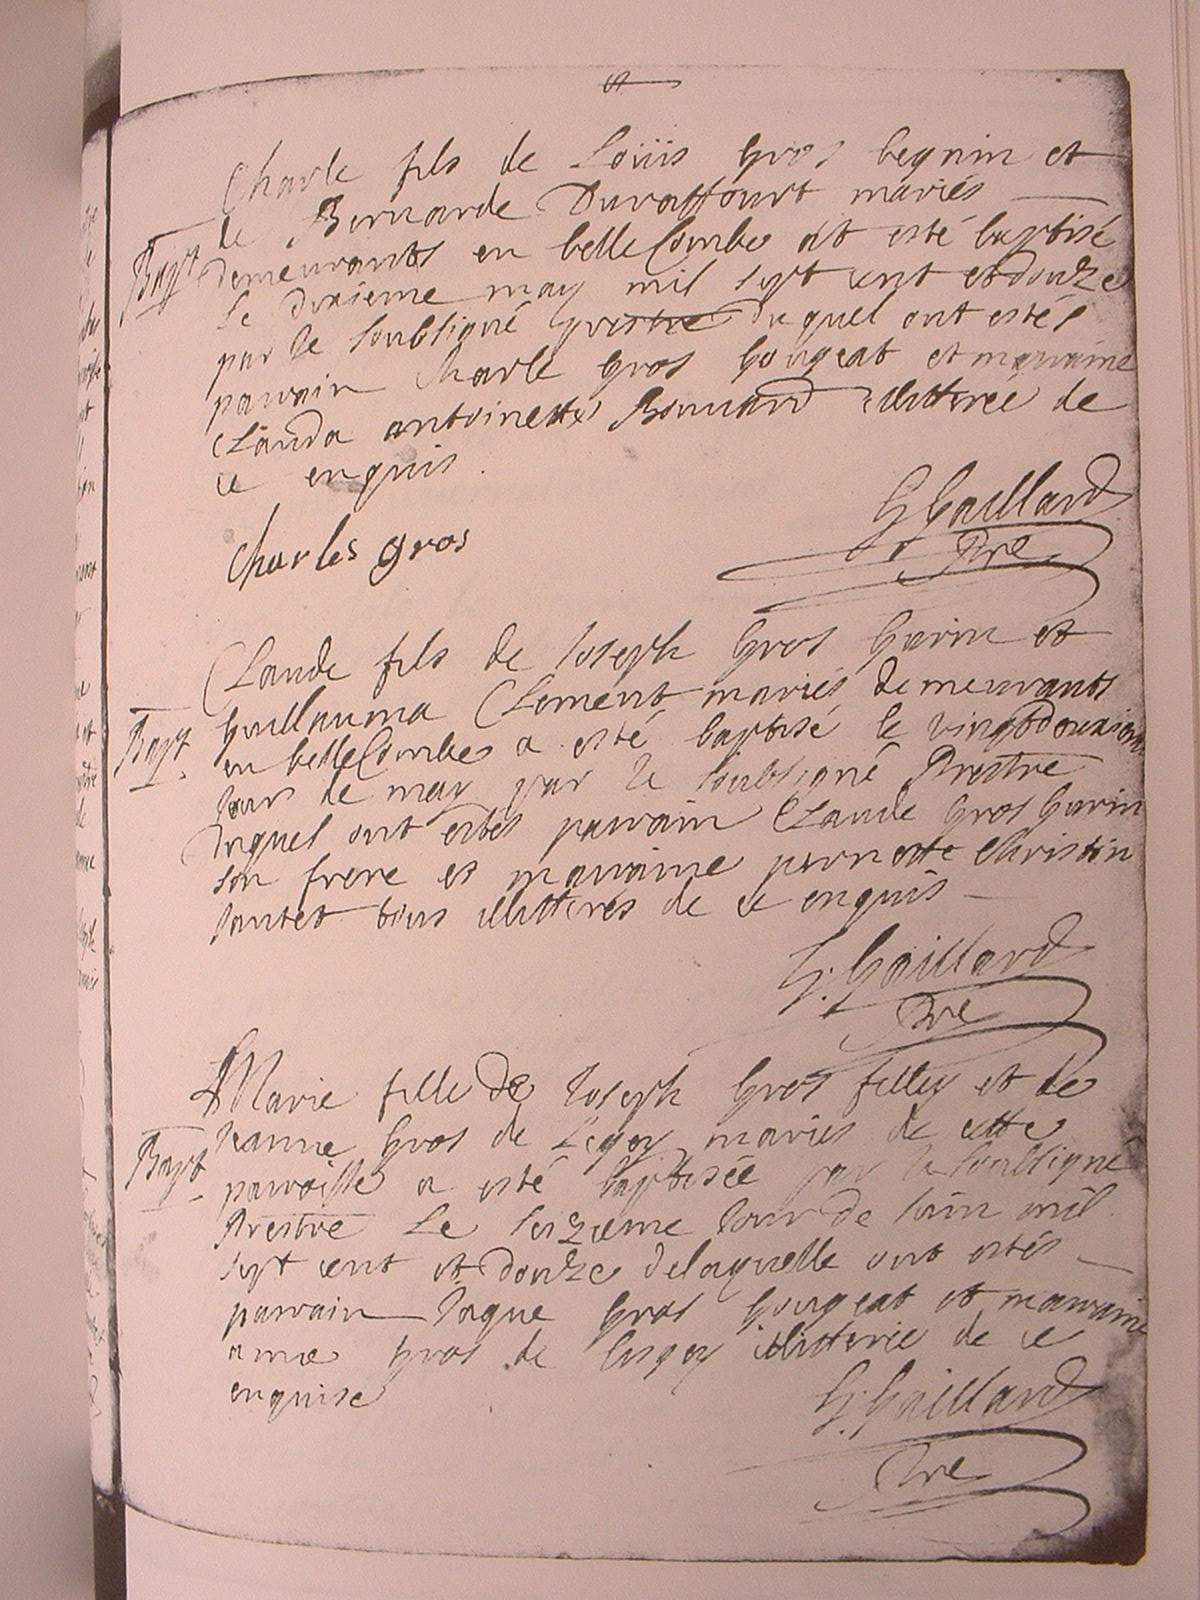 Charle fils de Loüis Gros begnin et
de Bernarde Duraffourt mariés
Bapt demeurants en belleCombe at esté baptisé
le dixieme may mil sept cent et douze
par le soubsigné prestre duquel ont estés
parrain Charle Gros Gougeat et marraine
Clauda antoinette Bonnard illitterée de
ce enquis.
Charles gros
G Gaillard
Pre
Claude fils de Joseph Gros Gurin et
Guillauma Clement mariés demeurants
Bapt en belleCombe a esté baptisé le vingtdouxiem
Jour de may par le soubsigné Prestre
duquel ont estés parrain Claude Gros Gurin
son frere et marraine pernette Christin
tous illitterés de ce enquis
G. Gaillard
Pre
Marie fille de Joseph Gros filley et de
Jeanne Gros de mariés de cette
Bapt parroisse a esté baptisée par le soubsigné
Prestre Le seizieme Jour de Juin mil
sept cent et douze delaquelle ont estés
parrain Jaque Gros Gougeat et marraine
Gros de illitterée de ce
enquise
G. Gaillard
Pre